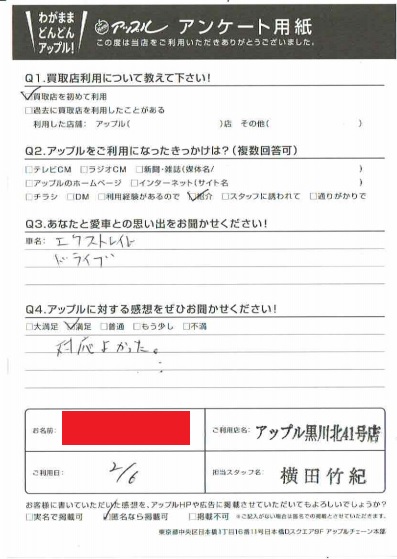 わがまま
どんどん
アップル!
アップル アンケート用紙
この度は当店をご利用いただきありがとうございました。
Q1.買取店利用について教えて下さい!
☑買取店を初めて利用
□過去に買取店を利用したことがある
利用した店舗: アップル( )店 その他( )
Q2.アップルをご利用になったきっかけは?(複数回答可)
□テレビCM □ラジオCM □新聞・雑誌(媒体名/ )
□アップルのホームページ □インターネット(サイト名 )
□チラシ □DM □利用経験があるので ☑紹介 □スタッフに誘われて □通りがかりで
Q3.あなたと愛車との思い出をお聞かせください!
車名: エクストレイル
ドライブ
Q4.アップルに対する感想をぜひお聞かせください!
□大満足 ☑満足 □普通 □もう少し □不満
対応よかった。
お名前:
ご利用店名: アップル黒川北41号店
ご利用日: 2/6
担当スタッフ名: 横田竹紀
お客様に書いていただいた感想を、アップルHPや広告に掲載させていただいてもよろしいでしょうか?
□実名で掲載可 ☑匿名なら掲載可 □掲載不可 ※ご記入がない場合は匿名での掲載とさせていただきます。
東京都中央区日本橋1丁目16番11号日本橋Dスクエア9F アップルチェーン本部